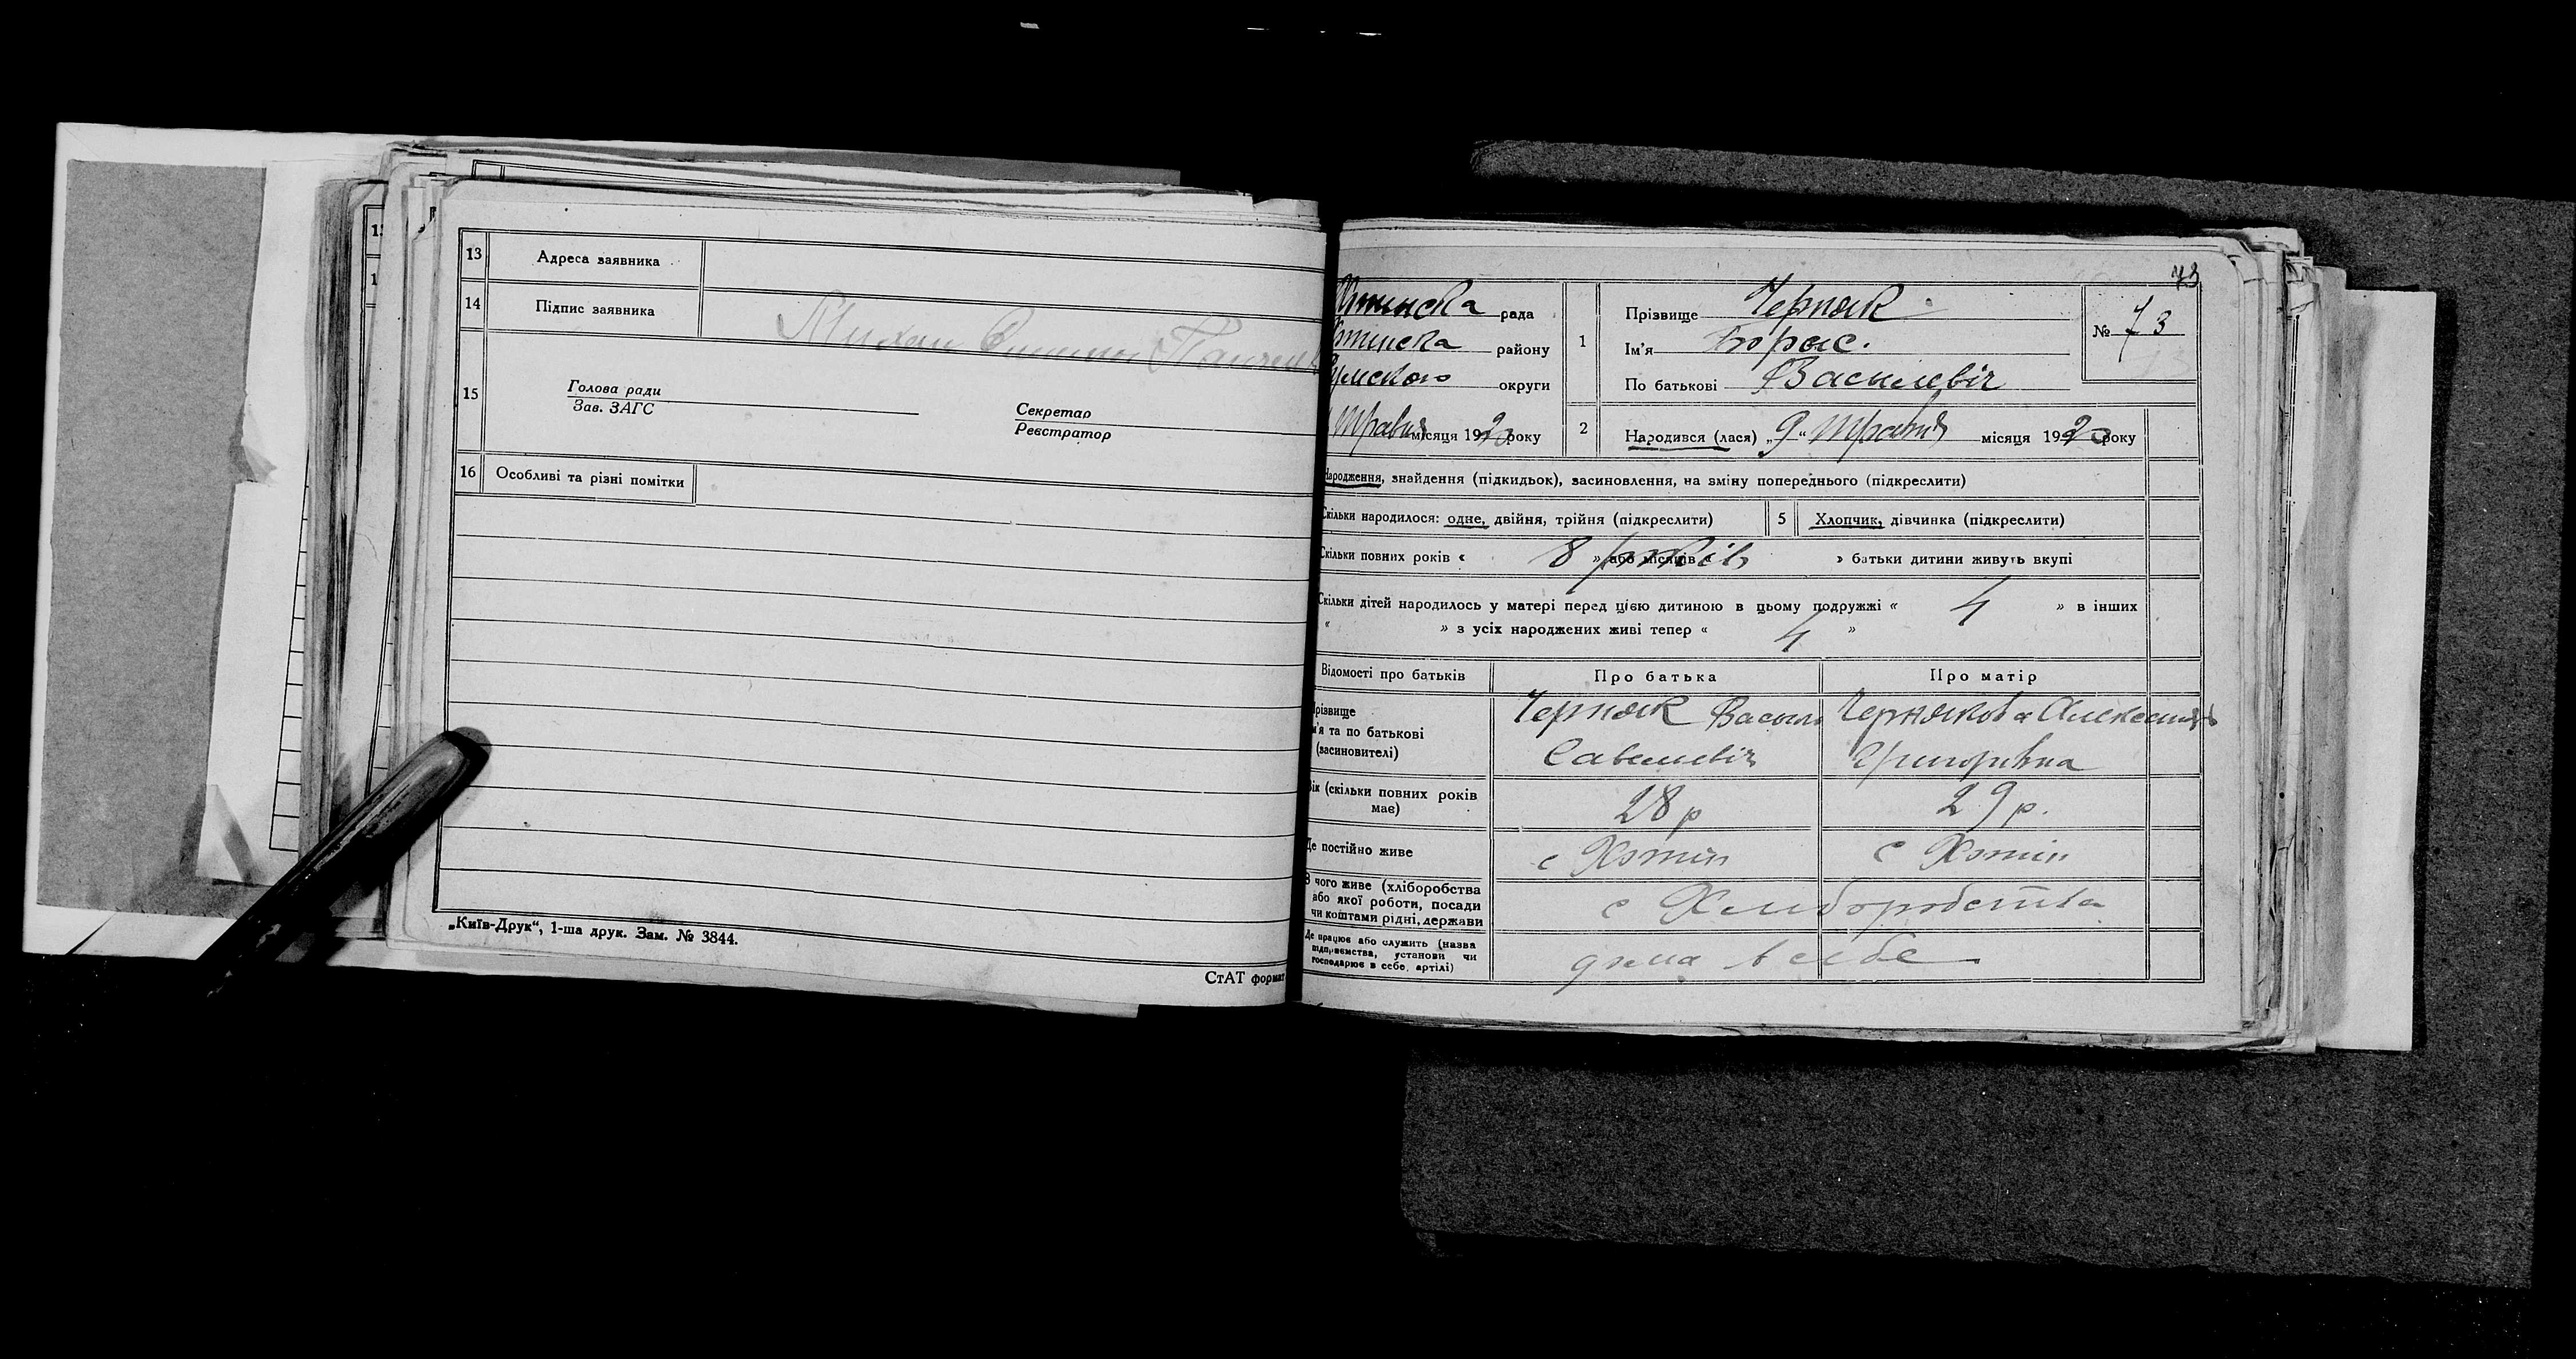 13 Адреса заявника
14 Підпис заявника
15 Голова ради
Зав. ЗАГС
Секретар
Реєстратор
16 Особливі та різні помітки
„Київ-Друк“, 1-ша друк. Зам. № 3844.
СтАТ формат
73
рада
району
округи
Травня місяця 192 року
1 Прізвище Черняк
Ім'я Борис.
По батькові Васильевіч
№ 73
2 Народився (лася) „9“ Травня місяця 192 року
Народження, знайдення (підкидьок), засиновлення, на зміну попереднього (підкреслити)
Скільки народилося: одне, двійня, трійня (підкреслити)
5 Хлопчик, дівчинка (підкреслити)
Скільки повних років « 8 років » або місяців « » батьки дитини живуть вкупі
Скільки дітей народилось у матері перед цією дитиною в цьому подружжі « 4 » в інших
« » з усіх народжених живі тепер « 4 »
Відомості про батьків Про батька Про матір
Прізвище
ім'я та по батькові
(засиновителі)
Черняк Василь
Савельевіч
Чернякова Александра
Григоровна
Вік (скільки повних років
має)
28 р
29 р.
Де постійно живе с Хотін с Хотін
З чого живе (хліборобства
або якої роботи, посади
чи коштами рідні, держави
с Хлиборобства
Де працює або служить (назва
підприємства, установи чи
господарює в себе, артілі)
дома в себе